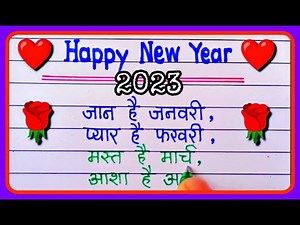 Happy New Year
2023
जान है जनवरी,
प्यार है फरवरी,
मस्त है मार्च,
आशा है अ